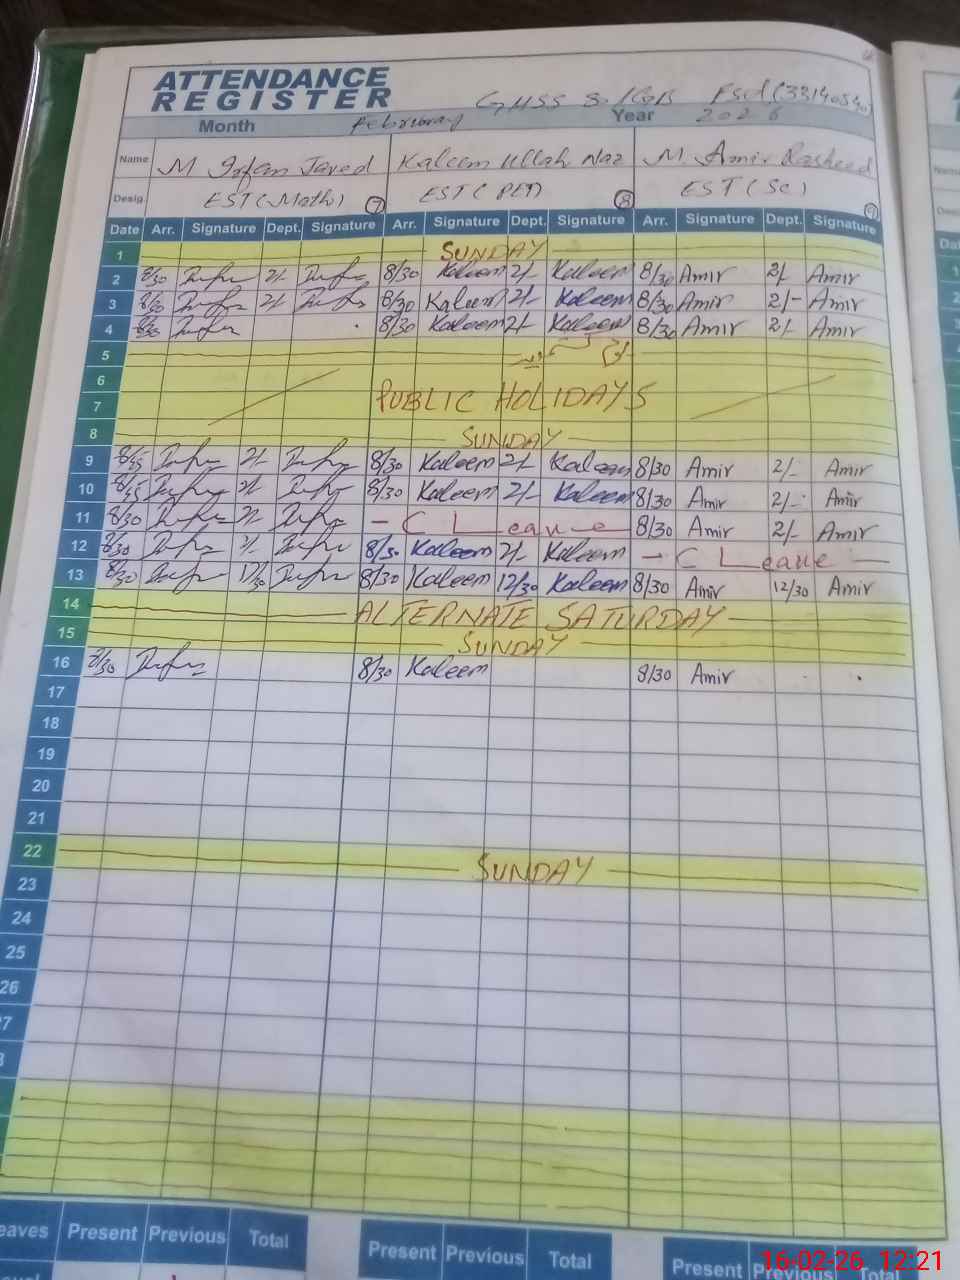 ATTENDANCE
REGISTER
GHSS Fsd (33140540)
Month February Year 2026
Name M Irfan Javed Kaleem Ullah Naz M. Amir Rasheed
Desig. EST (Math) 7 EST (PET) 8 EST (Sc) 9
Date Arr. Signature Dept. Signature Arr. Signature Dept. Signature Arr. Signature Dept. Signature
1 SUNDAY
2 8/30 2/- 8/30 Kaleem 2/- Kaleem 8/30 Amir 2/- Amir
3 8/30 2/- 8/30 Kaleem 2/- Kaleem 8/30 Amir 2/- Amir
4 8/30 8/30 Kaleem 2/- Kaleem 8/30 Amir 2/- Amir
5
6
7 PUBLIC HOLIDAYS
8 SUNDAY
9 2/- 8/30 Kaleem 2/- Kaleem 8/30 Amir 2/- Amir
10 2/- 8/30 Kaleem 2/- Kaleem 8/30 Amir 2/- Amir
11 8/30 2/- C Leave 8/30 Amir 2/- Amir
12 8/30 2/- 8/30 Kaleem 2/- Kaleem C Leave
13 8/30 12/30 8/30 Kaleem 12/30 Kaleem 8/30 Amir 12/30 Amir
14 ALTERNATE SATURDAY
15 SUNDAY
16 8/30 8/30 Kaleem 8/30 Amir
17
18
19
20
21
22 SUNDAY
23
24
25
26
7
8
eaves Present Previous Total Present Previous Total Present Previous Total
16-02-26 12:21